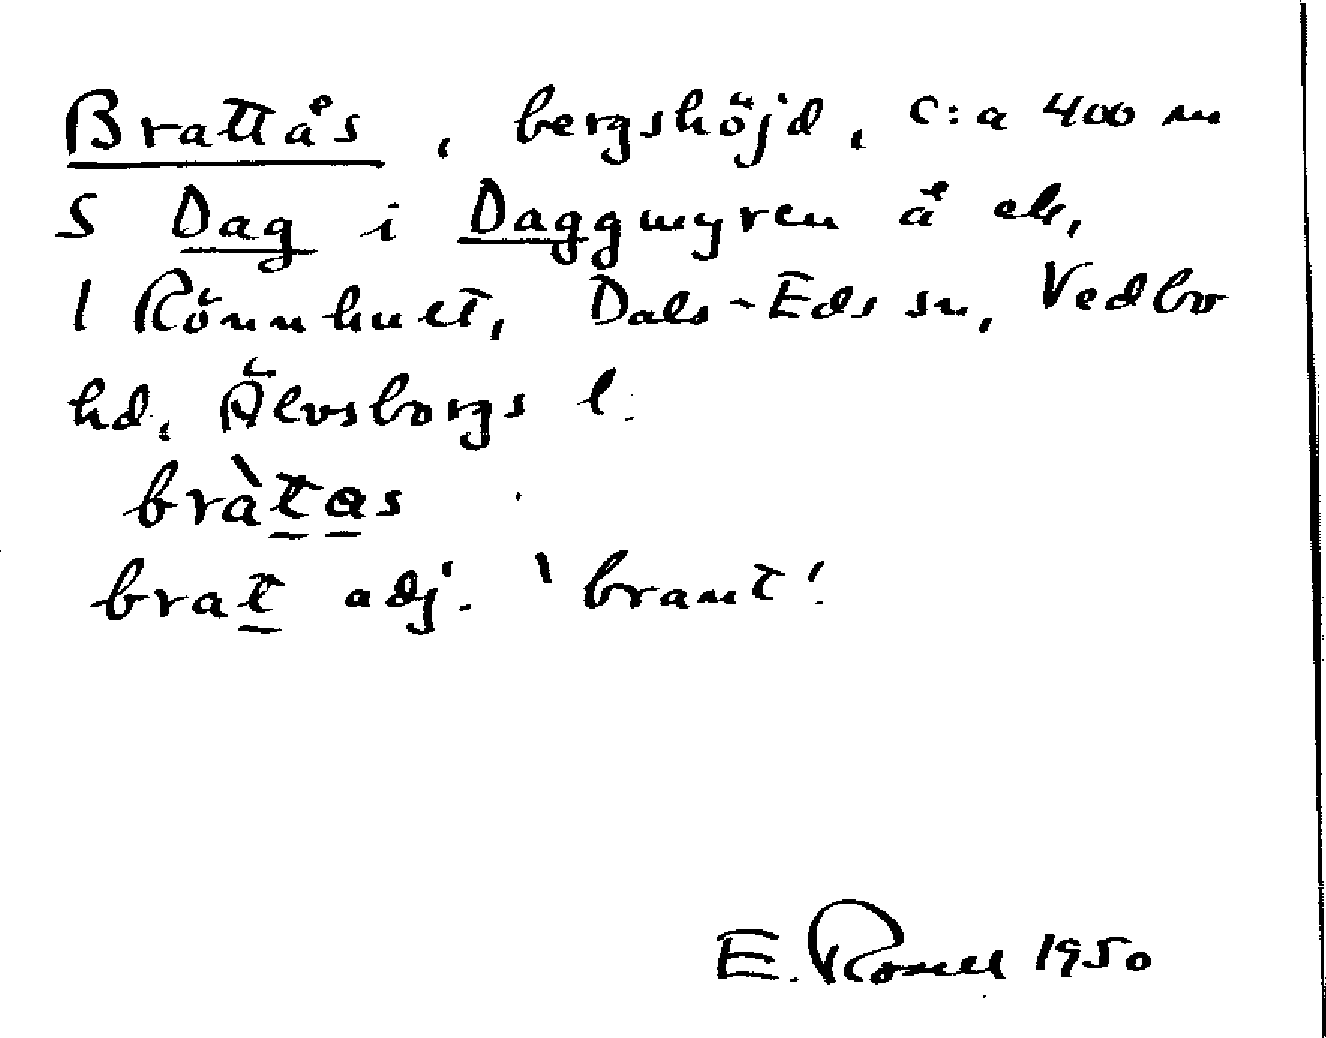 Brattås, bergshöjd, c:a 400 m
S Dag i Daggmyren å ek,
1 Rönnhult, Dals-Eds sn, Vedbo
hd, Älvsborgs l.
bràtas
brat adj. 'brant'.
E. 1950